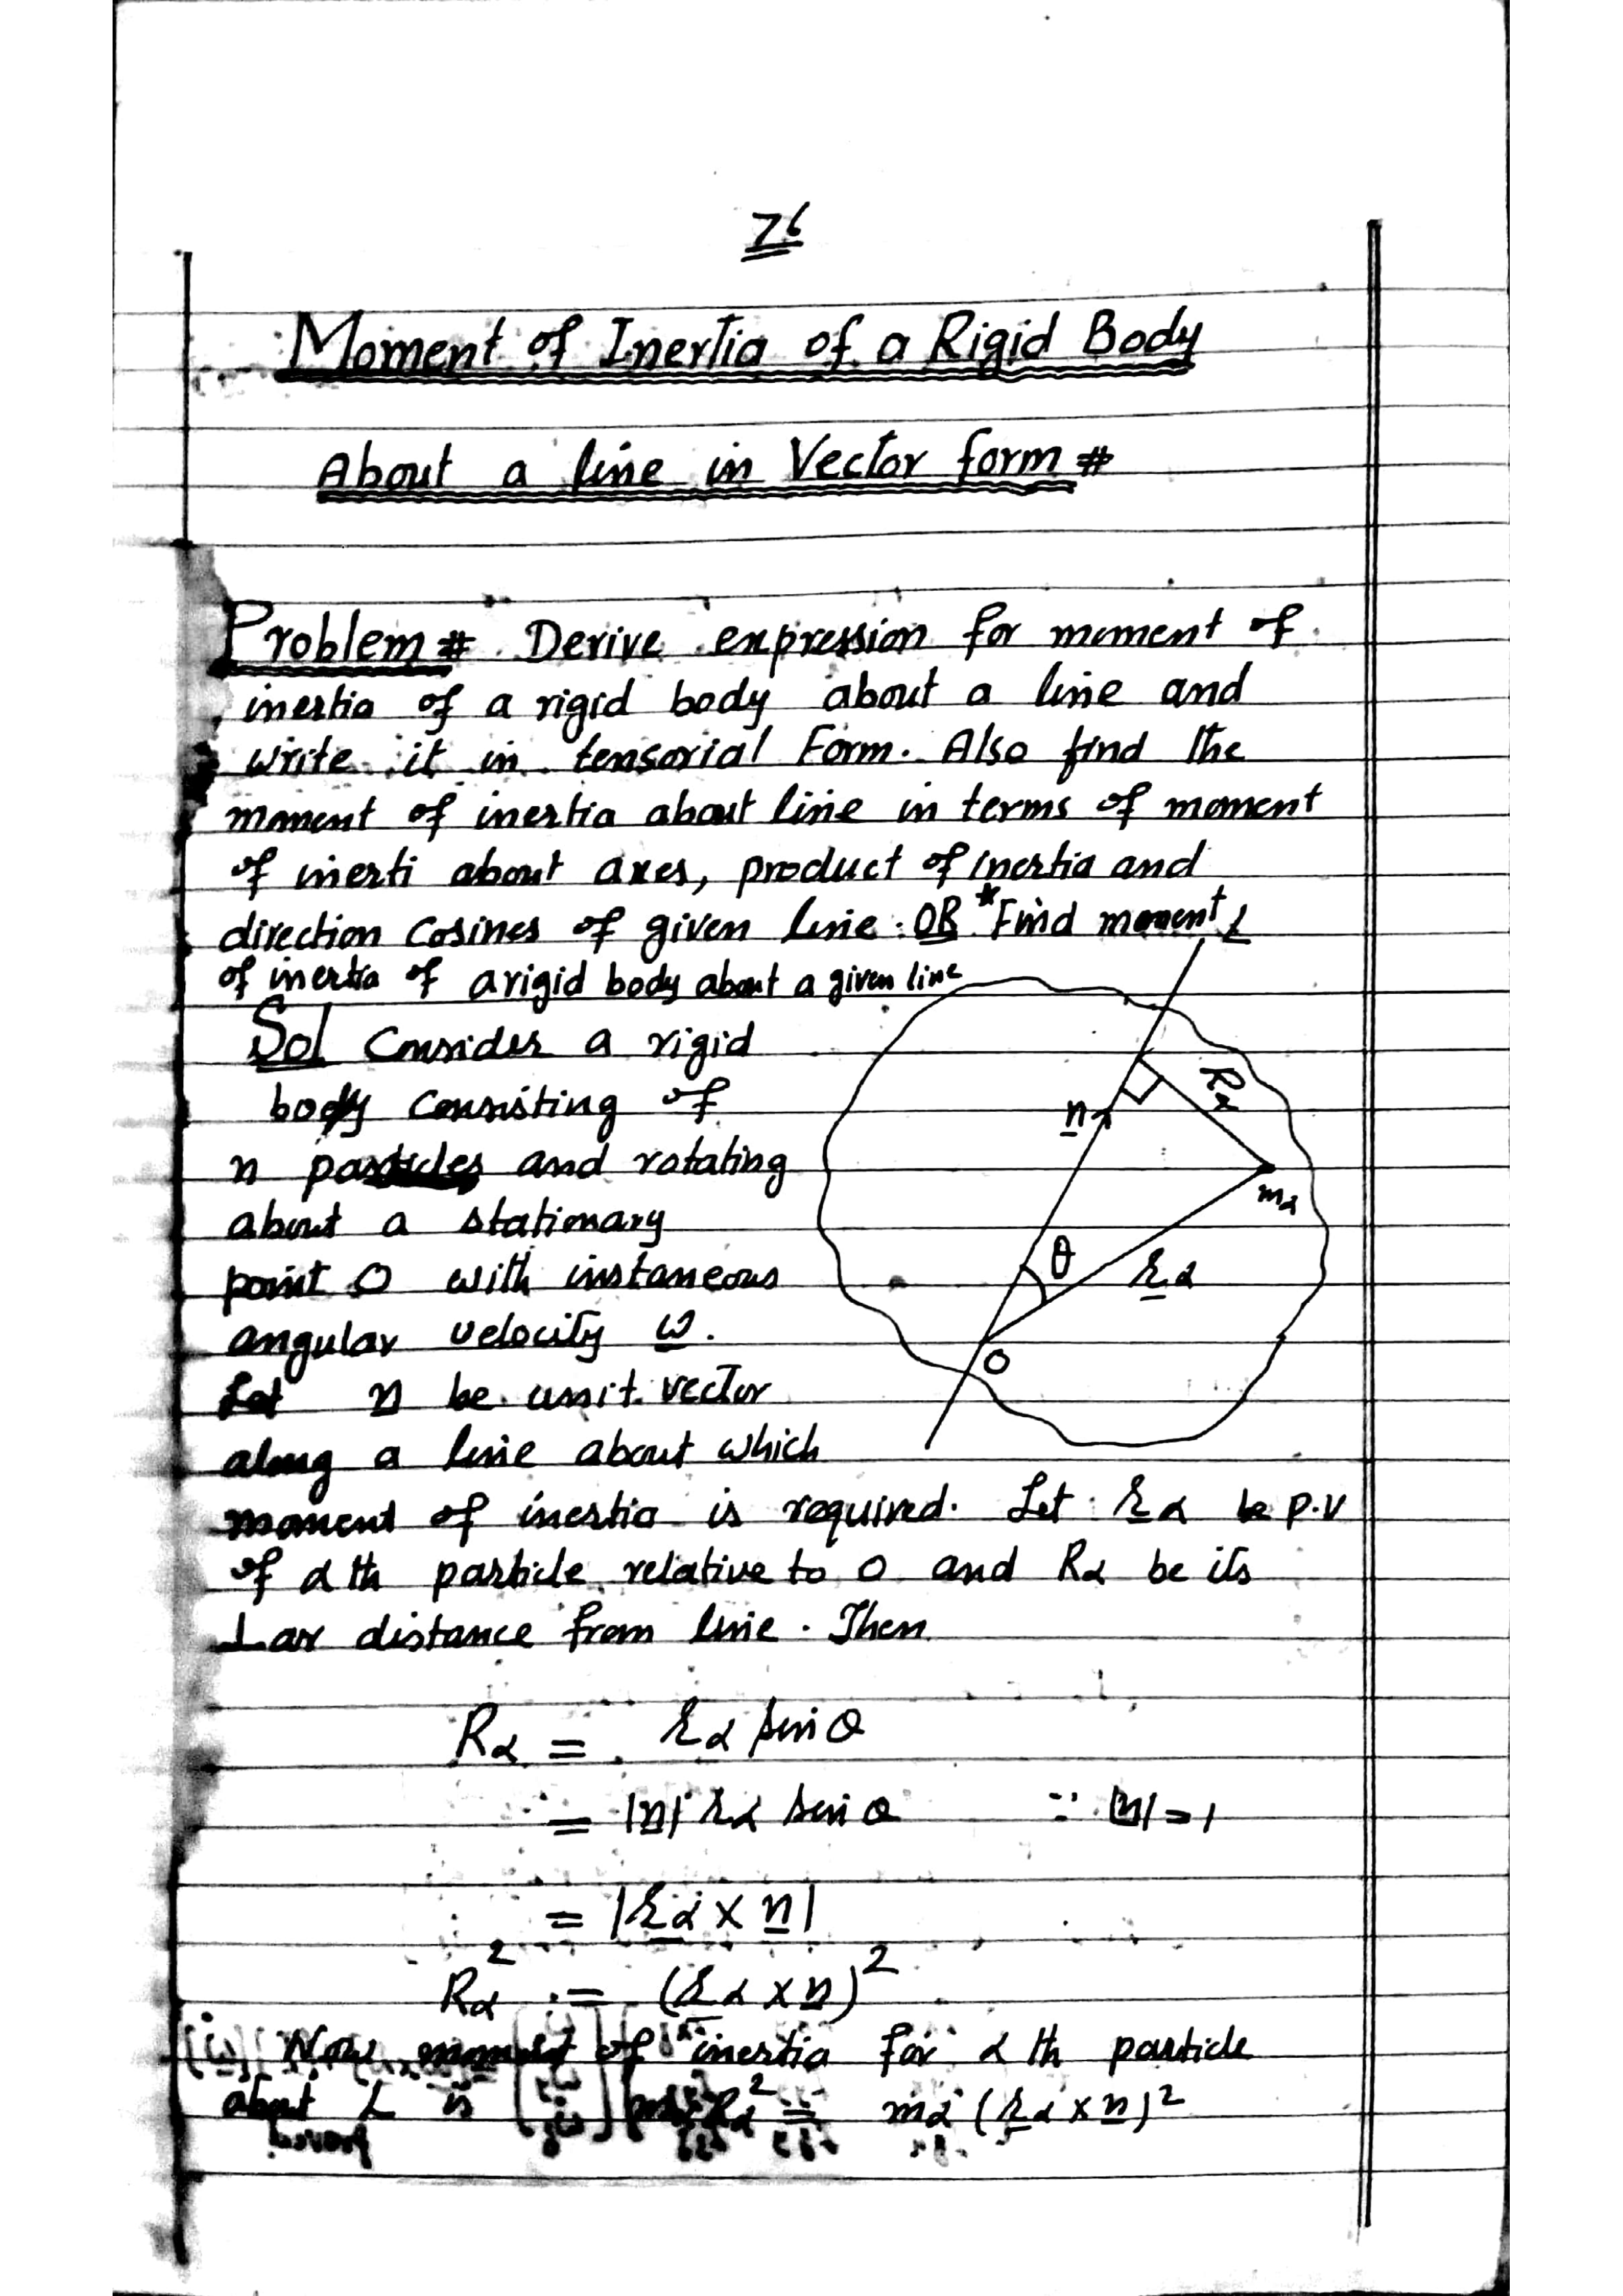 76
Moment of Inertia of a Rigid Body
About a line in Vector form #
Problem # Derive expression for moment of
inertia of a rigid body about a line and
write it in tensorial Form. Also find the
moment of inertia about line in terms of moment
of inerti about axes, product of inertia and
direction cosines of given line. OR * Find moment
of inertia of a rigid body about a given line
L
Sol Consider a rigid
body consisting of
n particles and rotating
about a stationary
point O with instaneous
angular velocity ω.
Let n be unit vector
along a line about which
n
Rα
mα
θ
rα
O
moment of inertia is required. Let rα be p.v
of α th particle relative to O and Rα be its
⊥ar distance from line. Then
Rα = rα sinθ
= |n| rα sinθ ∵ |n| = 1
= |rα × n|
Rα² = (rα × n)²
Now moment of inertia for α th particle
about L is Rα² = mα (rα × n)²